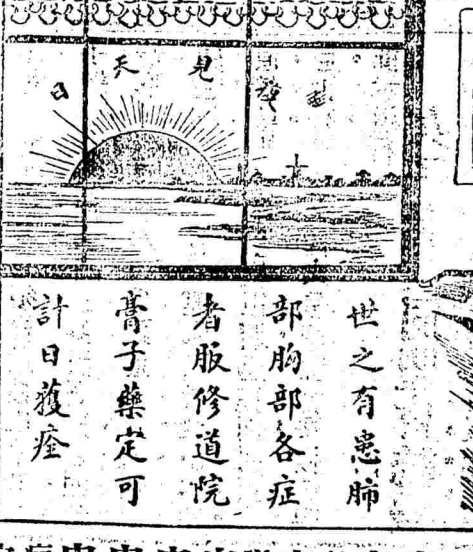 見天日
世之有患肺
部胸部各症
者服修道院
膏子藥定可
計日獲痊